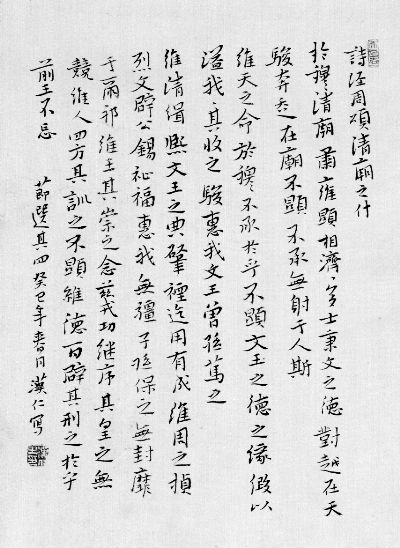 詩経周頌清廟之什
於穆清廟肅雍顯相濟々多士秉文之德對越在天
駿奔走在廟不顯不承無射于人斯
維天之命於穆不承於乎不顯文王之德之假以
溢我其收之駿惠我文王曾孫篤之
維清緝熙文王之典肇禋迄用有成維周之禎
烈文辟公錫祉福惠我無疆子孫保之無封靡
于爾邦維王其崇之念茲戎功継序其皇之無
競維人四方其訓之不顯維德百辟其刑之於乎
前王不忌
節選其四癸巳年春月漢仁寫